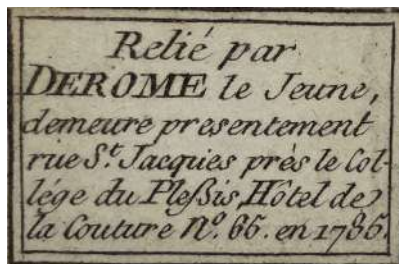 Relié par
DEROME le Jeune,
demeure presentement
rue St. Jacques près le Col-
lége du Pleſsis, Hôtel de
la Couture No. 65. en 1785.